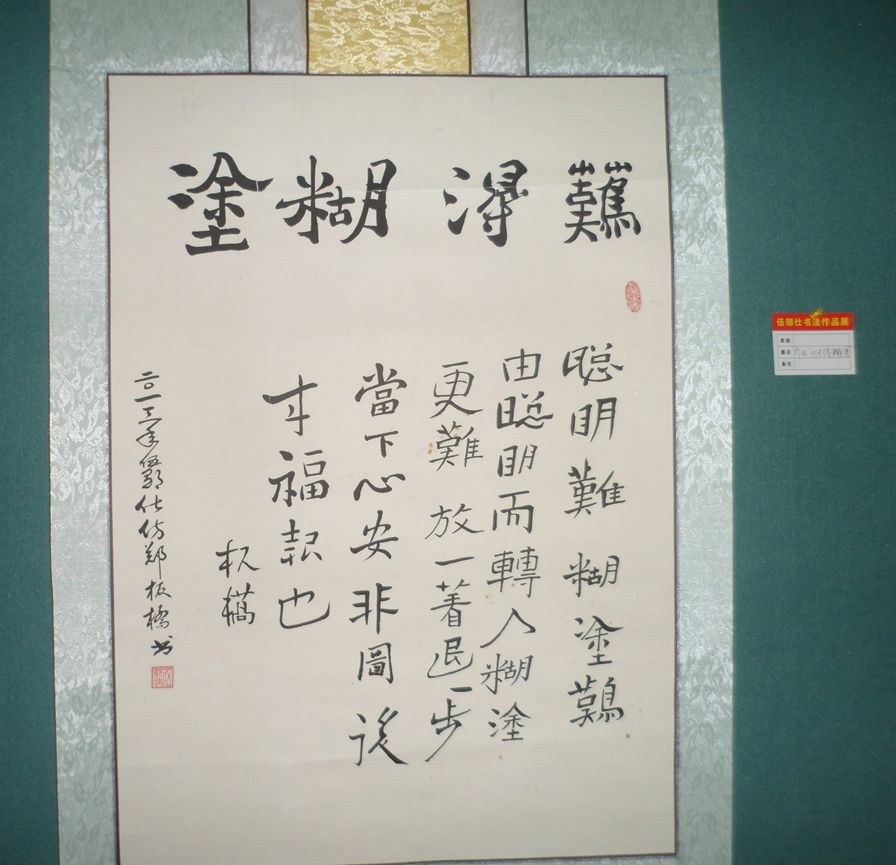 難得糊塗
聰明難糊塗難
由聰明而轉入糊塗
更難放一著退一步
當下心安非圖後
來福報也
板橋
二〇一三年伍仕仿郑板橋书
伍仕书法作品展
备注